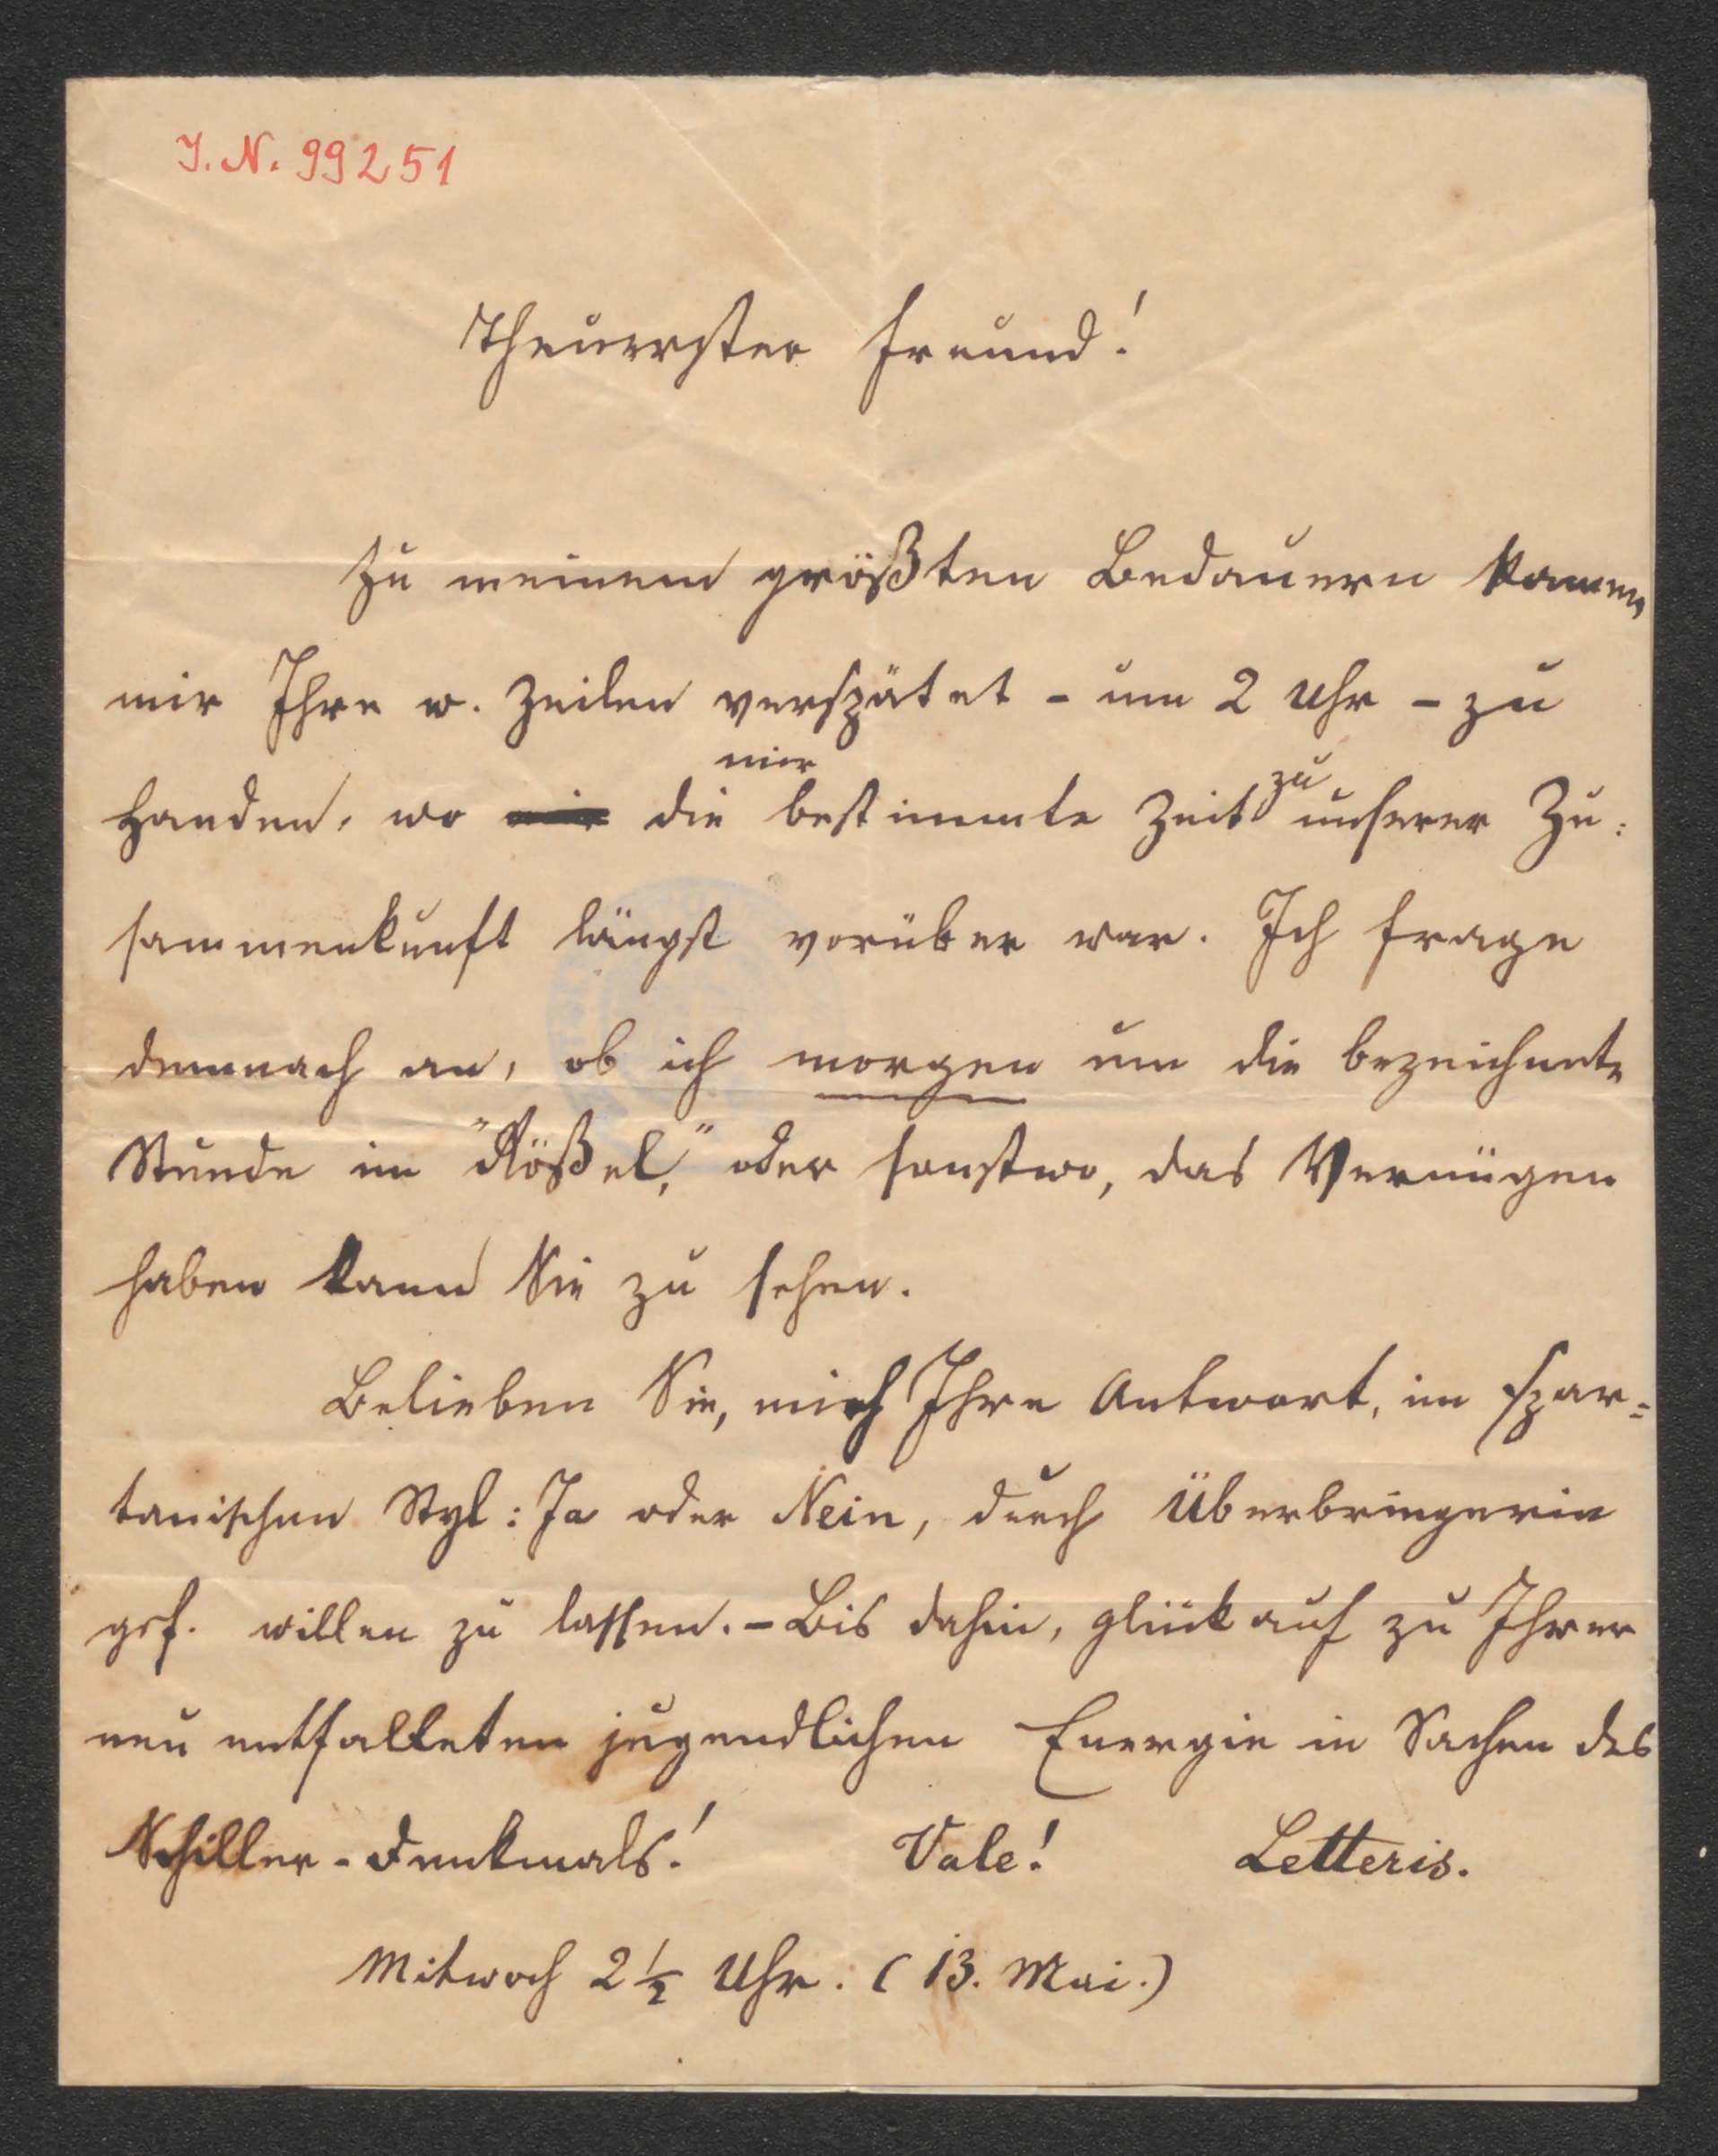 J. N. 99251
Theuerster Freund!
Zu meinem größten Bedauern kamen
mir Ihre w. Zeilen verspätet - um 2 Uhr - zu
Handen, wo mir die mir bestimmte Zeit zu unserer Zu:
sammenkunft längst vorüber war. Ich frage
demnach an, ob ich morgen um die bezeichnete
Stunde im "Rößel," oder sonstwo, das Vernügen
haben kann Sie zu sehen.
Belieben Sie, mich Ihre Antwort, im spar=
tanischen Styl: Ja oder Nein, durch Überbringerin
gef. willen zu lassen. - Bis dahin, glückauf zu Ihrer
neu entfalteten jugendlichen Energie in Sachen des
Schiller-Denkmals! Vale! Letteris.
Mitwoch 2½ Uhr. (13. Mai.)